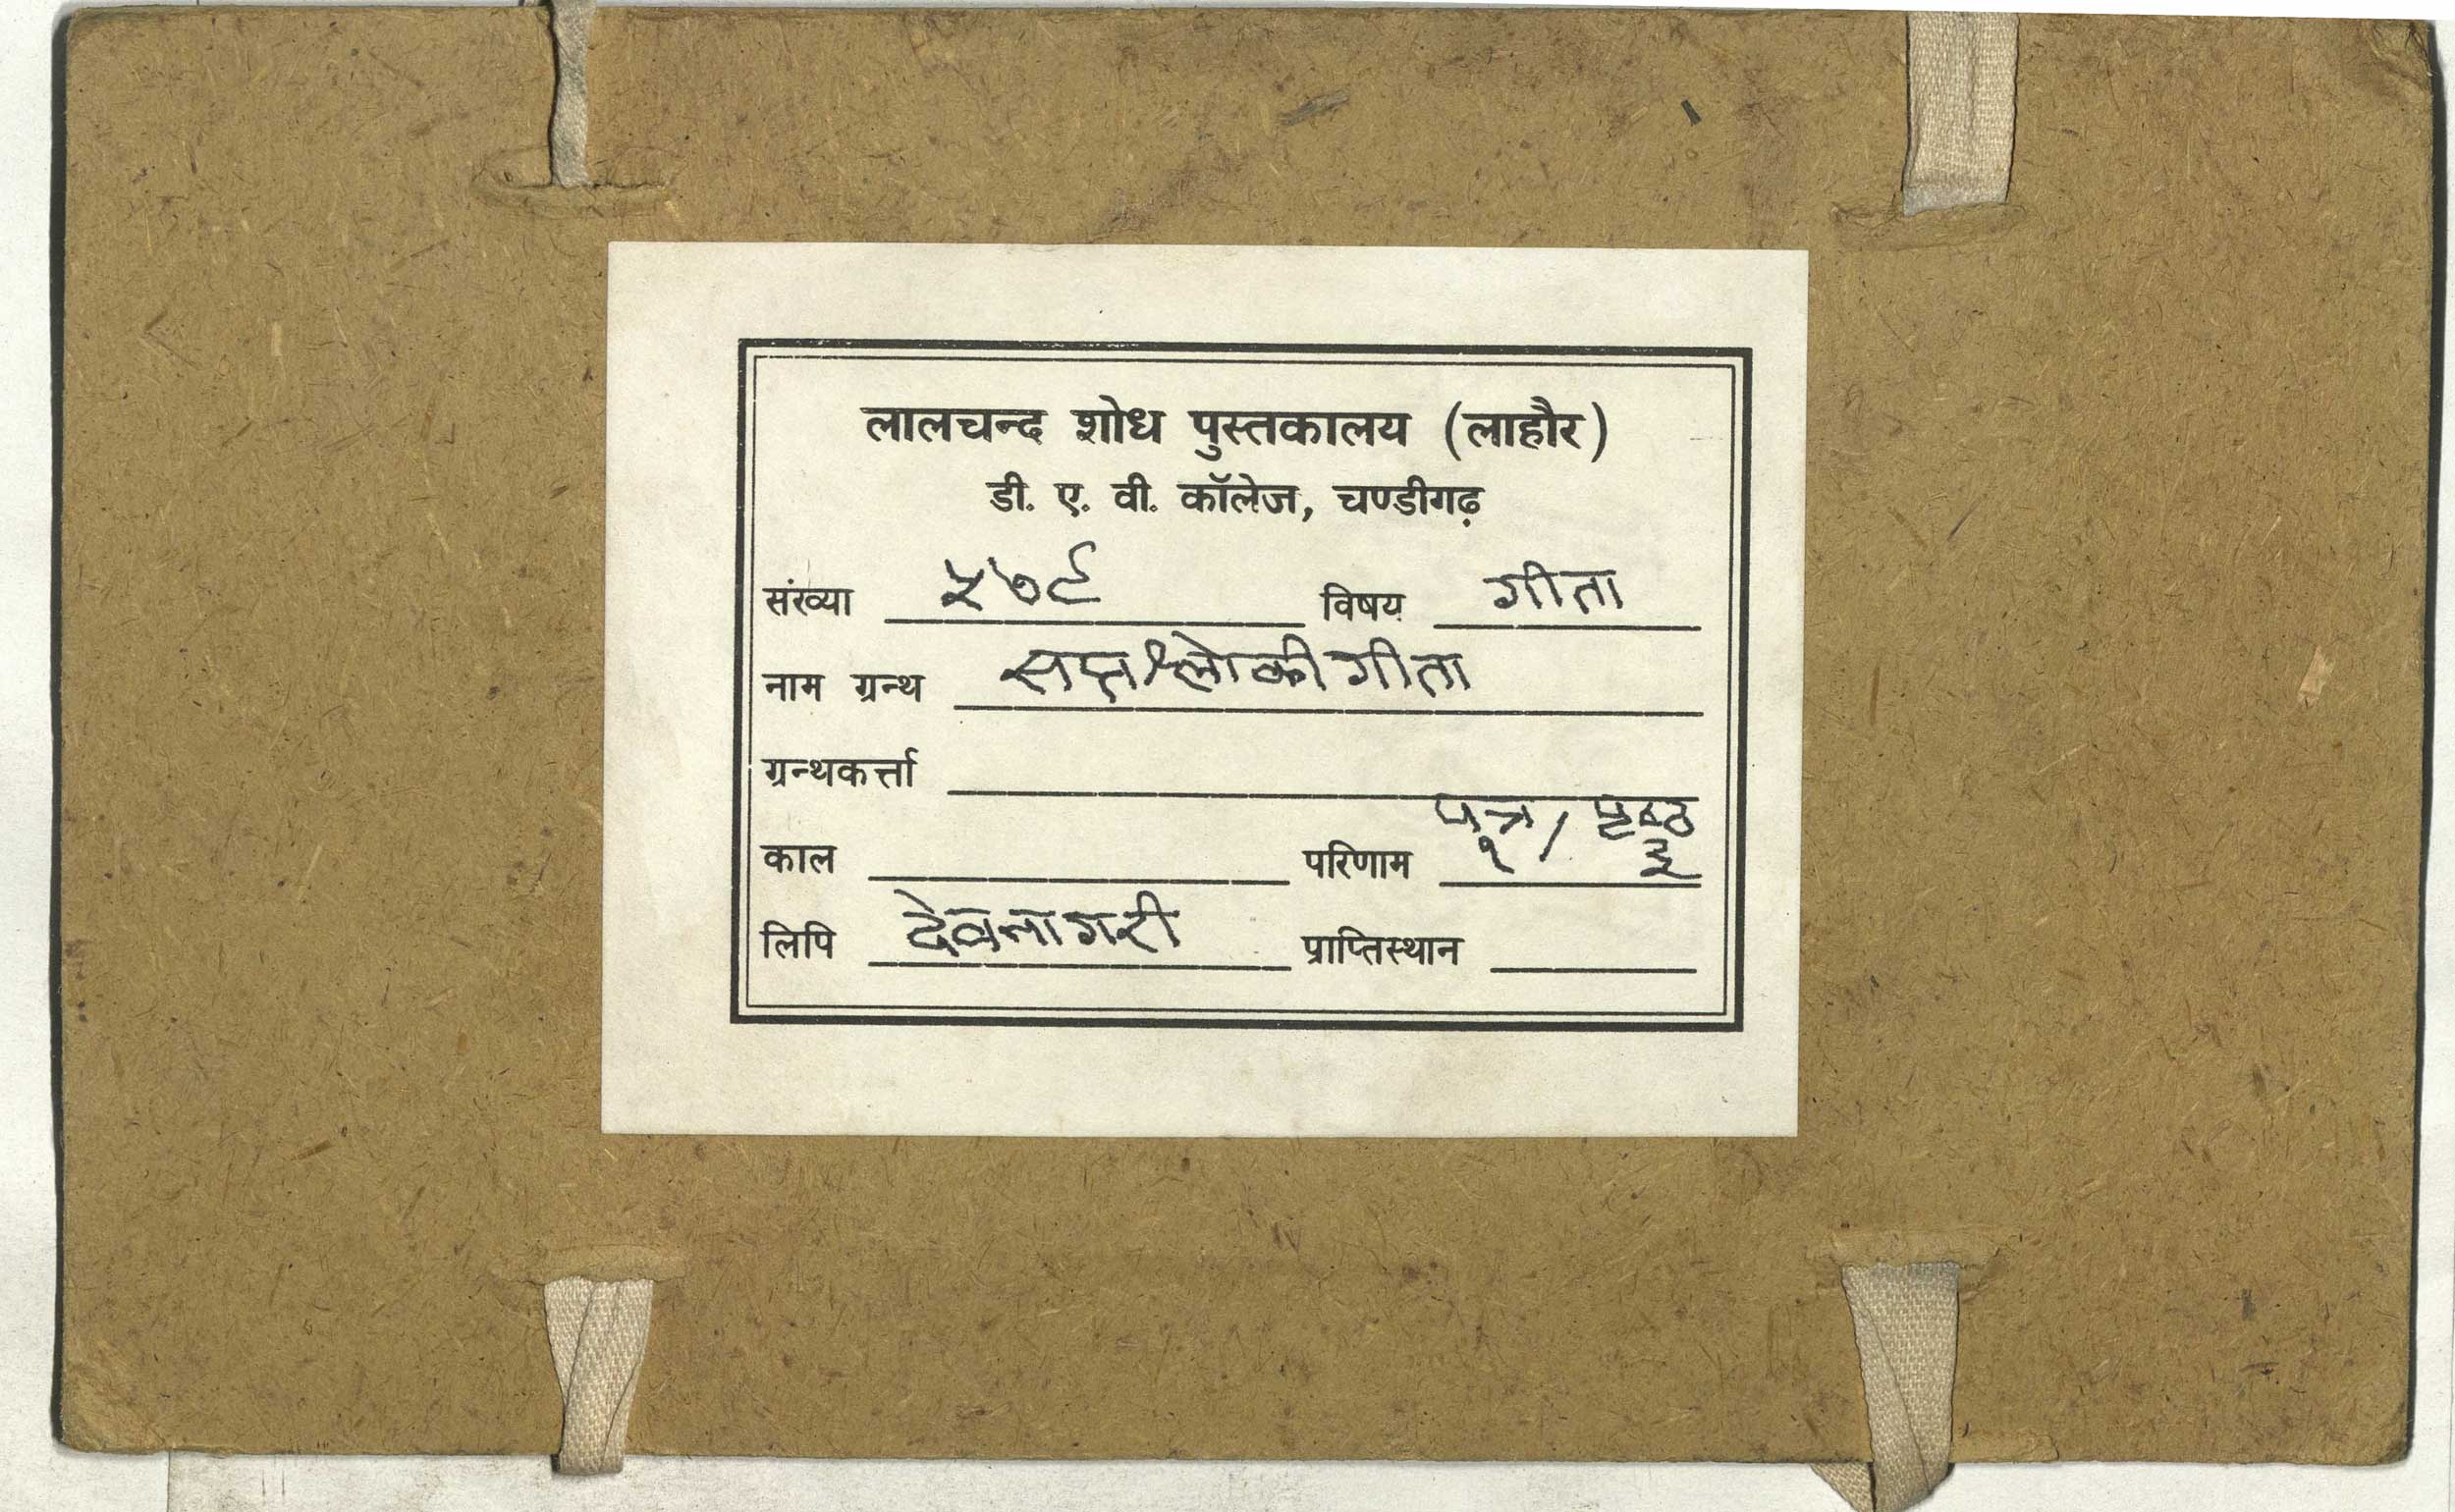 लालचन्द शोध पुस्तकालय (लाहौर)
डी. ए. वी. कॉलेज, चण्डीगढ़
संख्या ५७९ विषय गीता
नाम ग्रन्थ सप्तश्लोकी गीता
ग्रन्थकर्त्ता
काल परिणाम पत्र १ / पृष्ठ ३
लिपि देवनागरी प्राप्तिस्थान